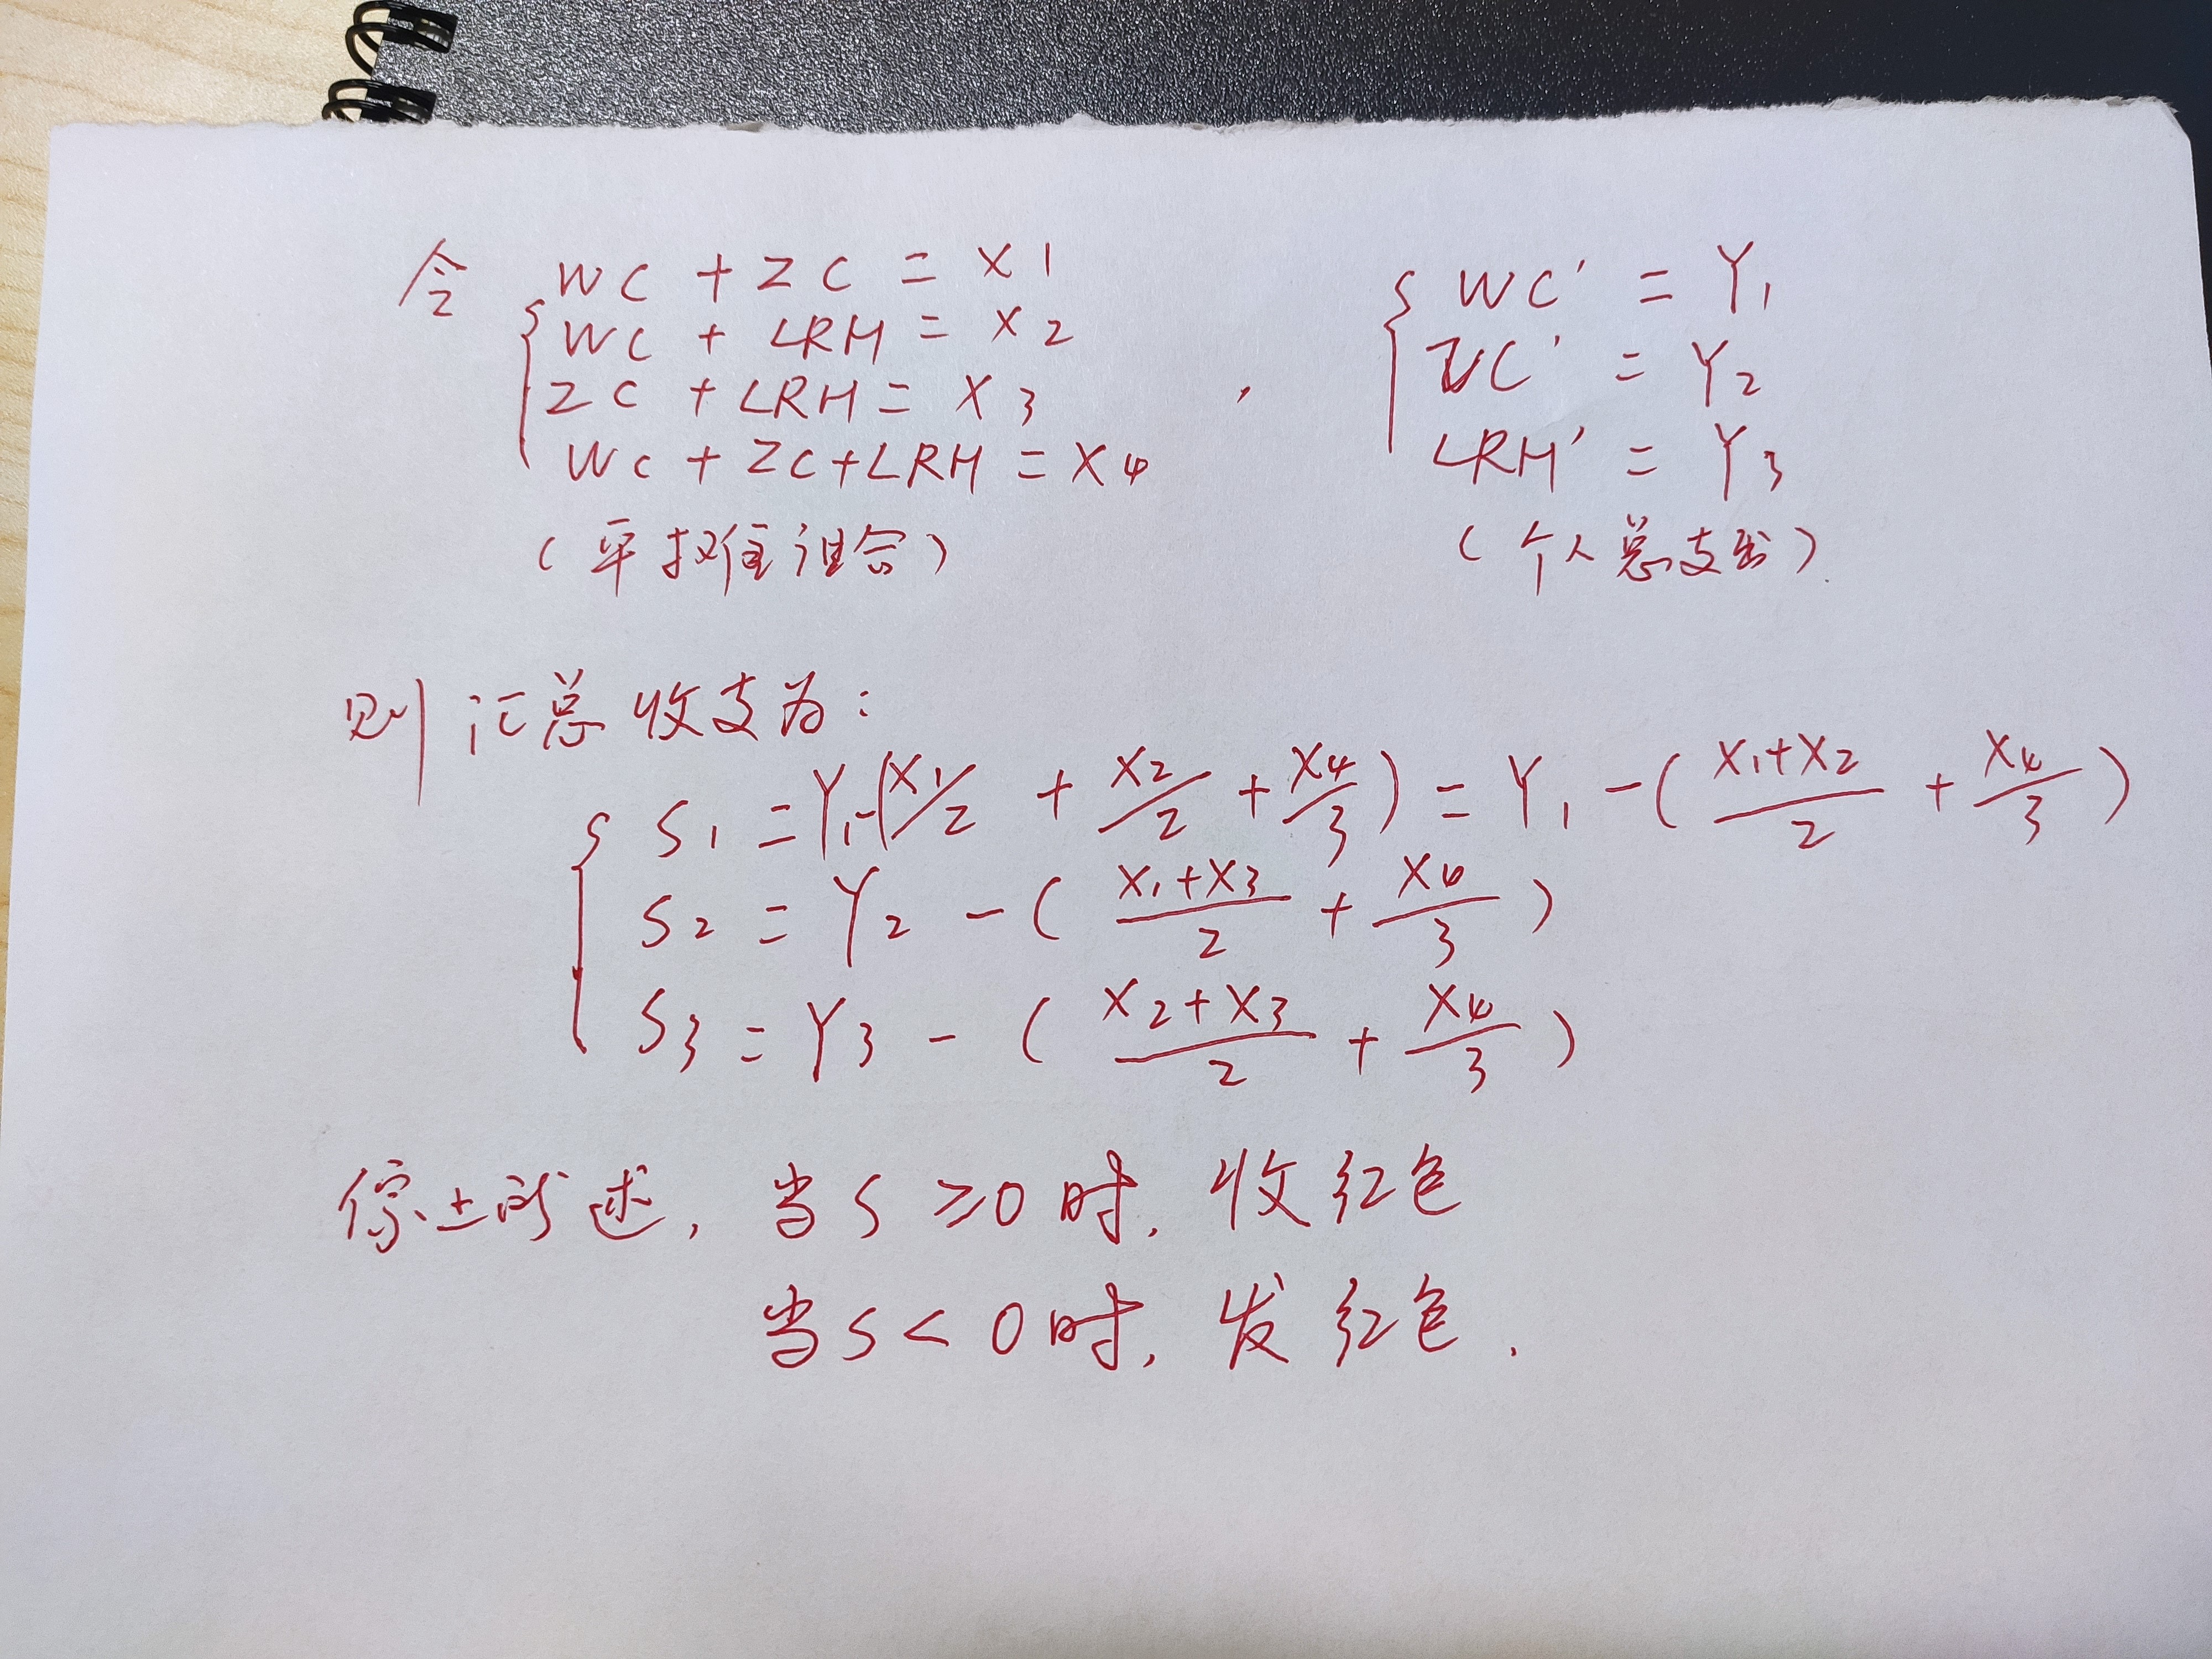 令 WC + ZC = X1
WC + LRH = X2
ZC + LRH = X3
WC + ZC + LRH = X4
(平摊组合)
, WC' = Y1
ZC' = Y2
LRH' = Y3
(个人总支出).
则汇总收支为:
S1 = Y1-(X1/2 + X2/2 + X4/3) = Y1 - ((X1+X2)/2 + X4/3)
S2 = Y2 - ((X1+X3)/2 + X4/3)
S3 = Y3 - ((X2+X3)/2 + X4/3)
综上所述, 当S ≥0时, 收红包
当S < 0时, 发红包.